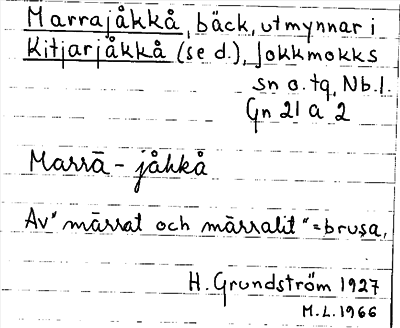 Marrajåkkå, bäck, utmynnar i
Kitjarjåkkå (se d.), Jokkmokks
sn o. tg, Nb. l.
Gn 21 a 2
Marrā - jåhkå
Av "mārrat och mārralit" = brusa,
H. Grundström 1927
M.L. 1966